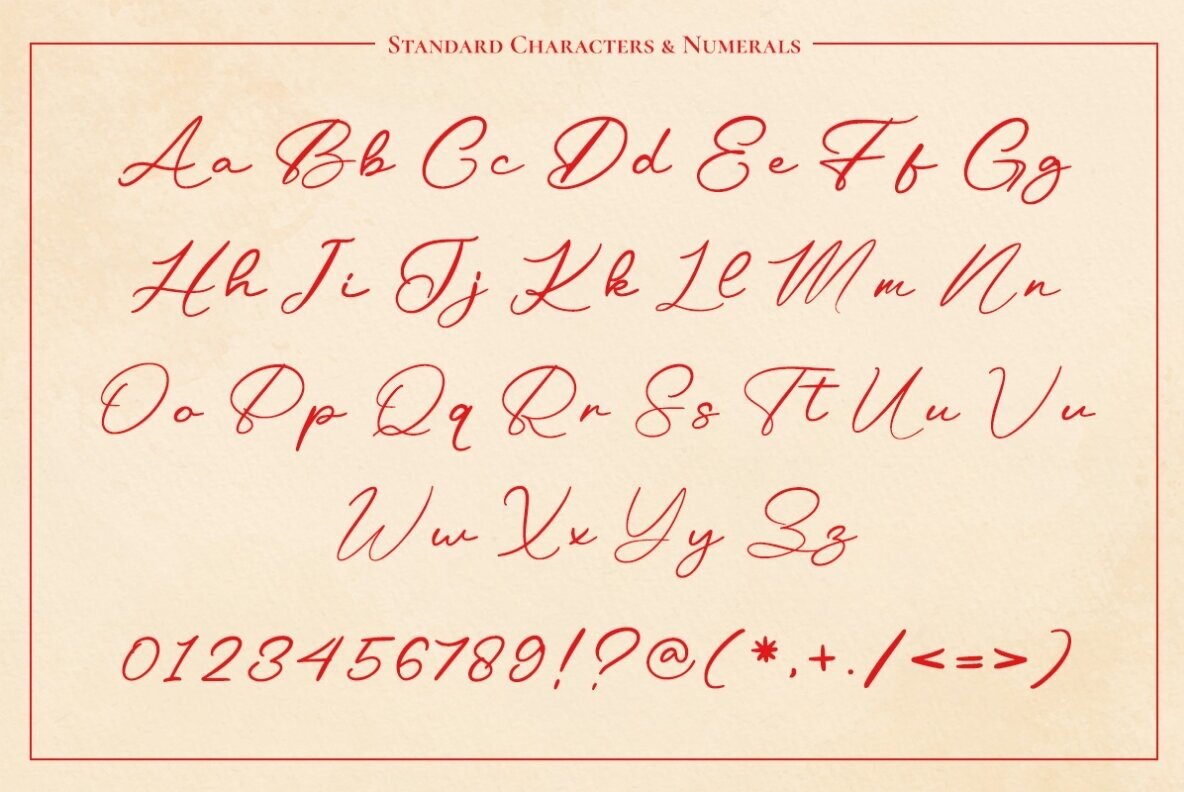 Standard Characters & Numerals
Aa Bb Cc Dd Ee Ff Gg
Hh Ii Jj Kk Ll Mm Nn
Oo Pp Qq Rr Ss Tt Uu Vv
Ww Xx Yy Zz
0123456789!?@(*,+./<=>)